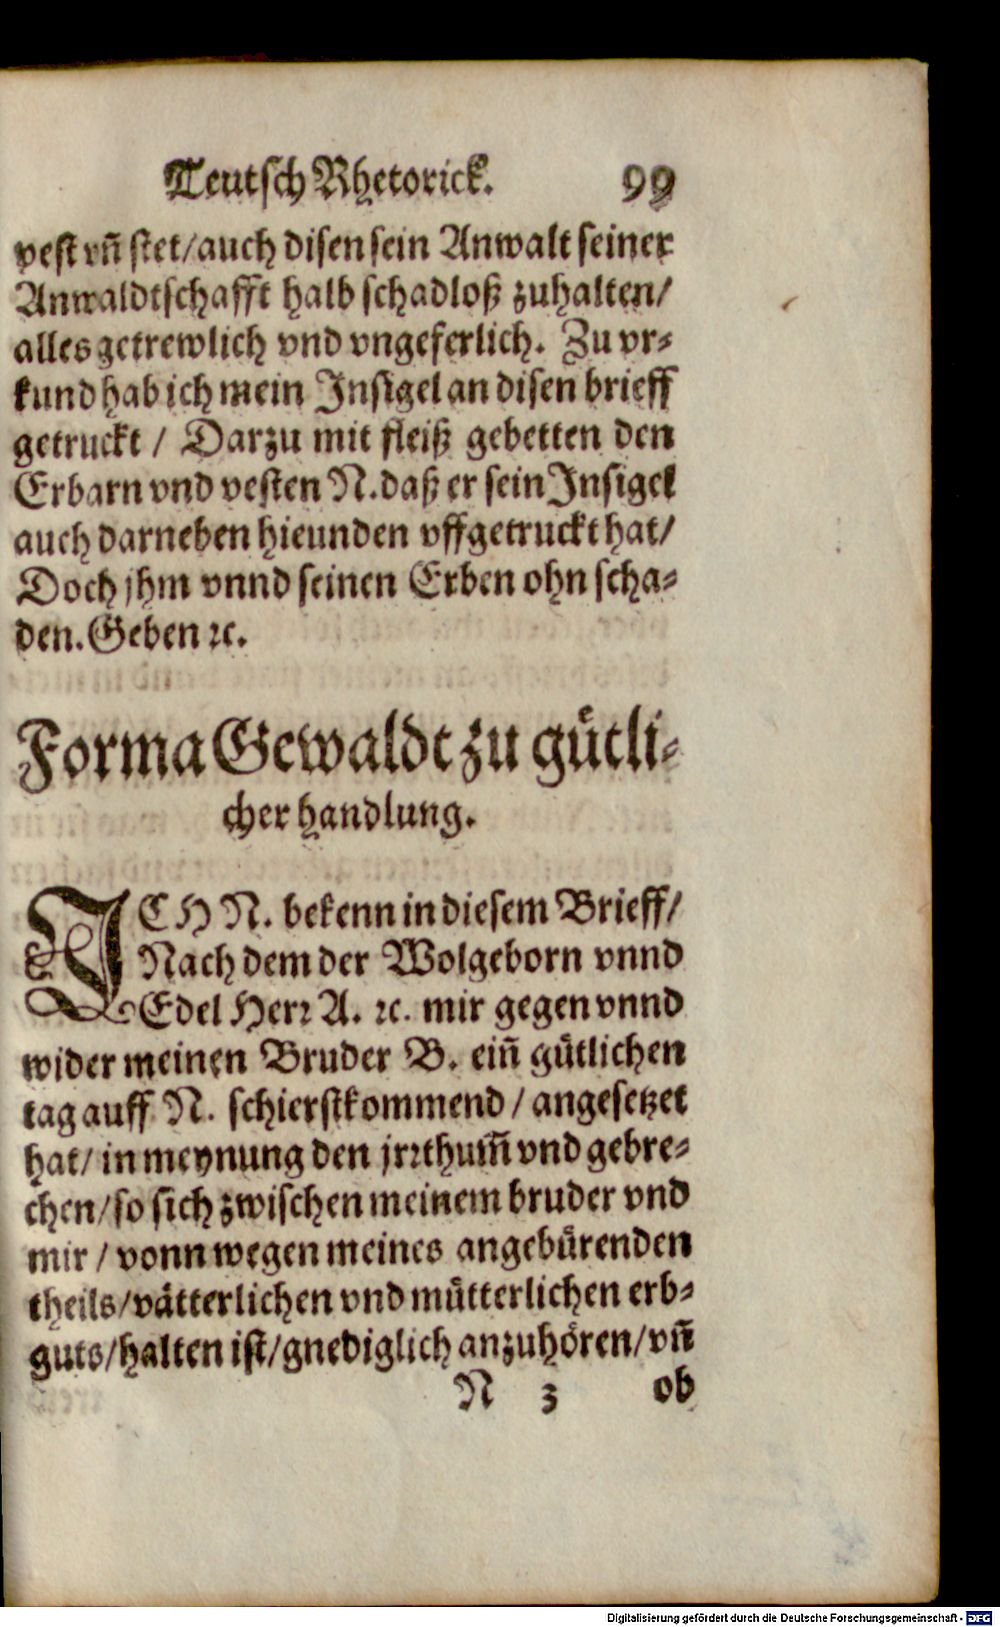 Teutsch Rhetorick. 99
vest vñ stet/auch disen sein Anwalt seiner
Anwaldtschafft halb schadloß zuhalten/
alles getrewlich vnd vngeferlich. Zu vr-
kund hab ich mein Insigel an disen brieff
getruckt / Darzu mit fleiß gebetten den
Erbarn vnd vesten N. daß er sein Insigel
auch darneben hieunden vffgetruckt hat/
Doch jhm vnnd seinen Erben ohn scha-
den. Geben ꝛc.
Forma Gewaldt zu guͤtli-
cher handlung.
ICH N. bekenn in diesem Brieff/
Nach dem der Wolgeborn vnnd
Edel Herꝛ A. ꝛc. mir gegen vnnd
wider meinen Bruder B. eiñ guͤtlichen
tag auff N. schierstkommend / angesetzet
hat/ in meynung den jrꝛthum̃ vnd gebre-
chen/so sich zwischen meinem bruder vnd
mir / vonn wegen meines angebuͤrenden
theils/vaͤtterlichen vnd muͤtterlichen erb-
guts/halten ist/gnediglich anzuhoͤren/vñ
N 3 ob
Digitalisierung gefördert durch die Deutsche Forschungsgemeinschaft - DFG